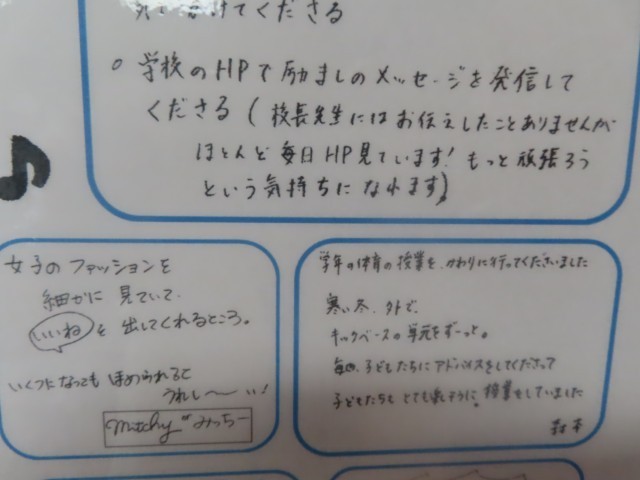 気にかけてくださる
○ 学校のHPで励ましのメッセージを発信して
くださる（校長先生にはお伝えしたことありませんが
ほとんど毎日HP見ています！もっと頑張ろう
という気持ちになれます）
女子のファッションを
細かに見ていて、
いいねを出してくれるところ。
いくつになってもほめられると
うれし〜〜い！
Mitchy or みっちー
学年の体育の授業を、かわりに行ってくださいました
寒い冬、外で、
キックベースの単元をずーっと。
毎回、子どもたちにアドバイスをしてくださって
子どもたちもとても楽しそうに、授業をしていました